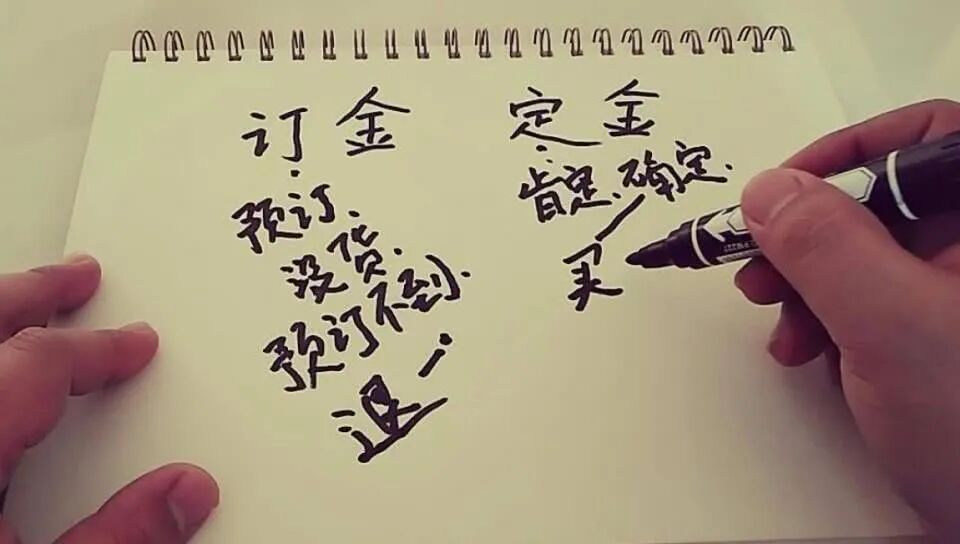 订金
预订.
没货.
预订不到.
退
定金
肯定.确定.
买